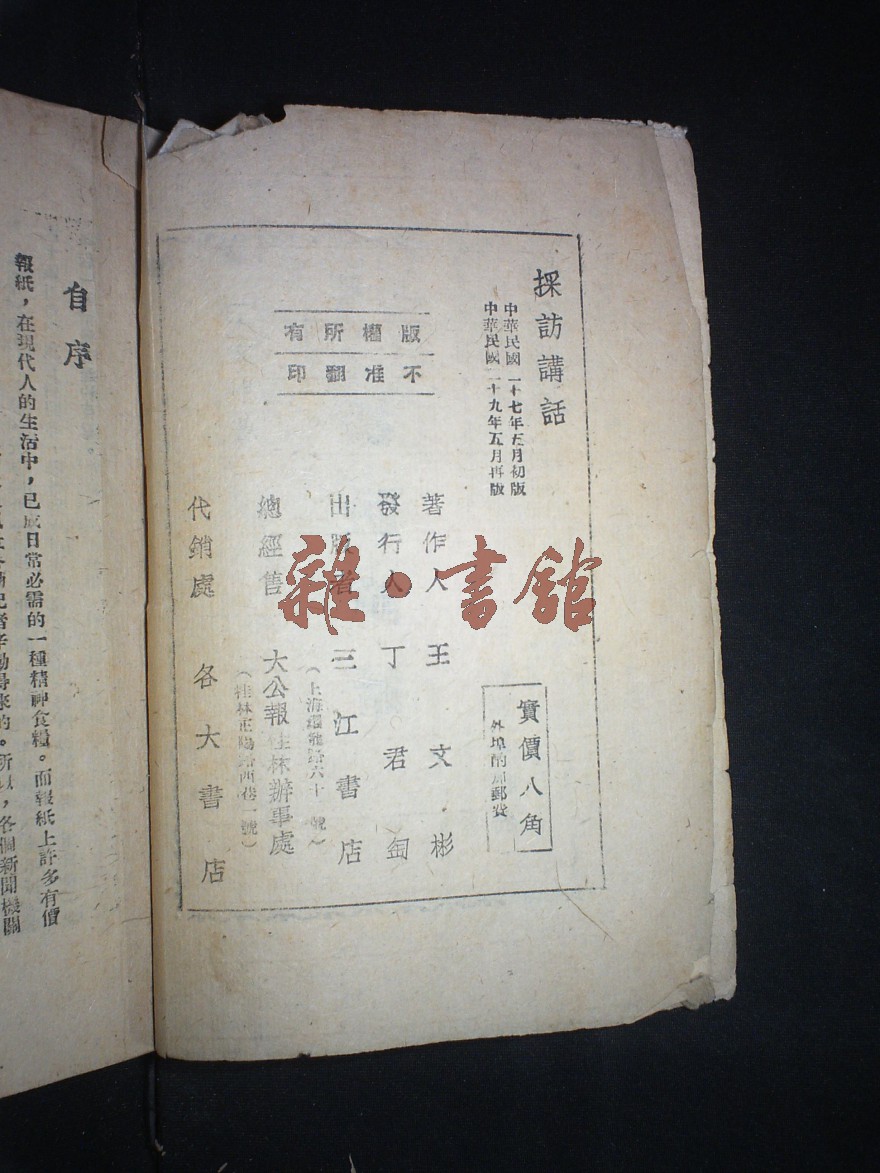 採訪講話
中華民國二十七年五月初版
中華民國二十九年五月再版
版權所有
不准翻印
實價八角
外埠酌加郵費
著作人 王文彬
發行人 丁君匋
出版者 三江書店
(上海 路六十 號)
總經售 大公報桂林辦事處
(桂林正陽路西巷一號)
代銷處 各大書店
雜·書館
自序
報紙,在現代人的生活中,已成日常必需的一種精神食糧。而報紙上許多有價
得來的。所以,各個新聞機關